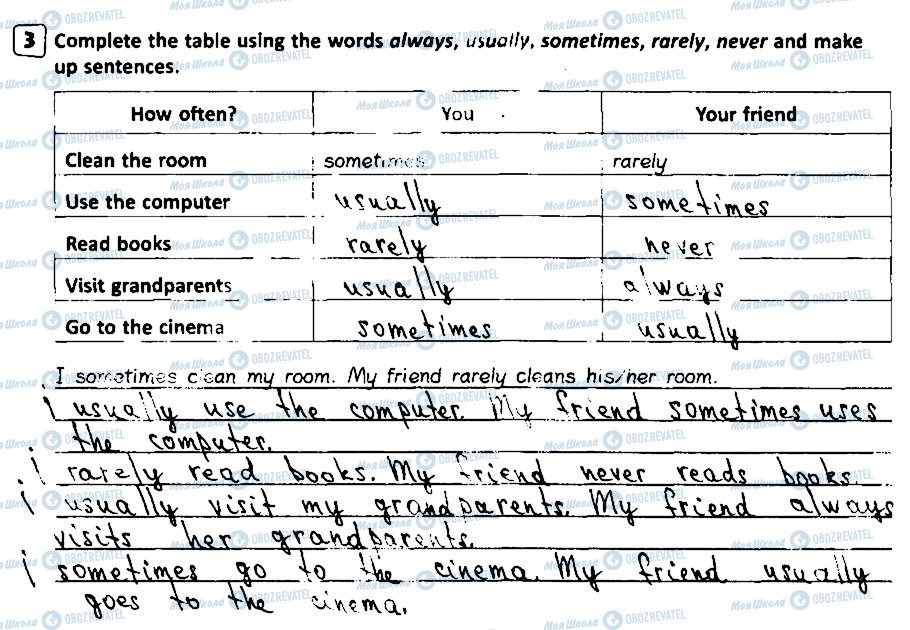 3 Complete the table using the words always, usually, sometimes, rarely, never and make
up sentences.
How often? You Your friend
Clean the room sometimes rarely
Use the computer usually sometimes
Read books rarely never
Visit grandparents usually always
Go to the cinema sometimes usually
I sometimes clean my room. My friend rarely cleans his/her room.
I usually use the computer. My friend sometimes uses
the computer.
I rarely read books. My friend never reads books.
I usually visit my grandparents. My friend always
visits her grandparents.
I sometimes go to the cinema. My friend usually
goes to the cinema.
Моя Школа OBOZREVATEL